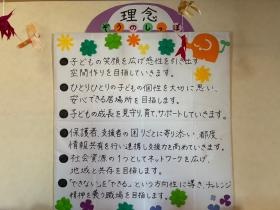 理念
ぞうのしっぽ
●子どもの笑顔を広げ感性を引き出す
空間作りを目指していきます。
●ひとりひとりの子どもの個性を大切に思い、
安心できる居場所を目指します。
●子どもの成長を見守り育て、サポートしていきます。
●保護者、支援者の困りごとに寄り添い、都度、
情報共有を行い連携し支援力を高めていきます。
●社会資源の1つとしてネットワークを広げ、
地域と共存を目指します。
●「できない」を「できる」という方向性に導き、チャレンジ
精神を養う職場を目指します。